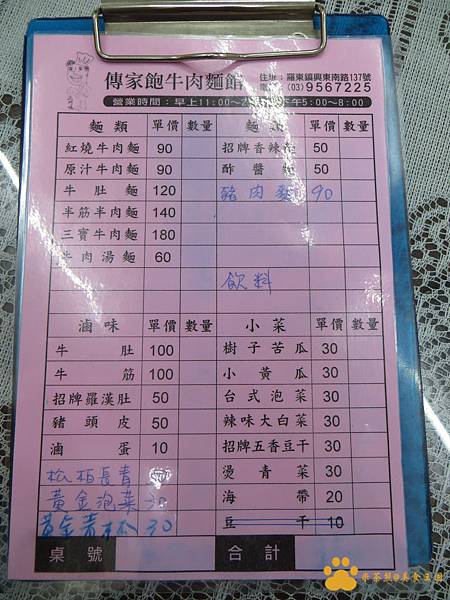 傳家飽牛肉麵館
住址:羅東鎮興東南路137號
(03)9567225
營業時間:早上11:00~2 下午5:00~8:00
麵類 單價 數量 麵 單價 數量
紅燒牛肉麵 90 招牌香辣 50
原汁牛肉麵 90 酢醬 50
牛肚麵 120 豬肉 90
半筋半肉麵 140
三寶牛肉麵 180
牛肉湯麵 60
飲料
滷味 單價 數量 小菜 單價 數量
牛肚 100 樹子苦瓜 30
牛筋 100 小黃瓜 30
招牌羅漢肚 50 台式泡菜 30
豬頭皮 50 辣味大白菜 30
滷蛋 10 招牌五香豆干 30
松柏長青 燙青菜 30
黃金泡菜 30 海帶 20
黃金青木瓜 30 豆干 10
桌號 合計